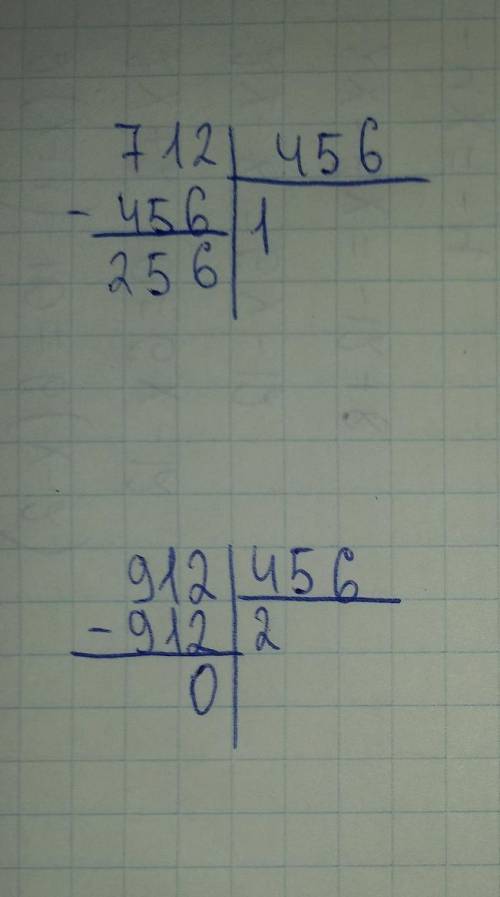 712 456
- 456 1
256
912 456
- 912 2
0